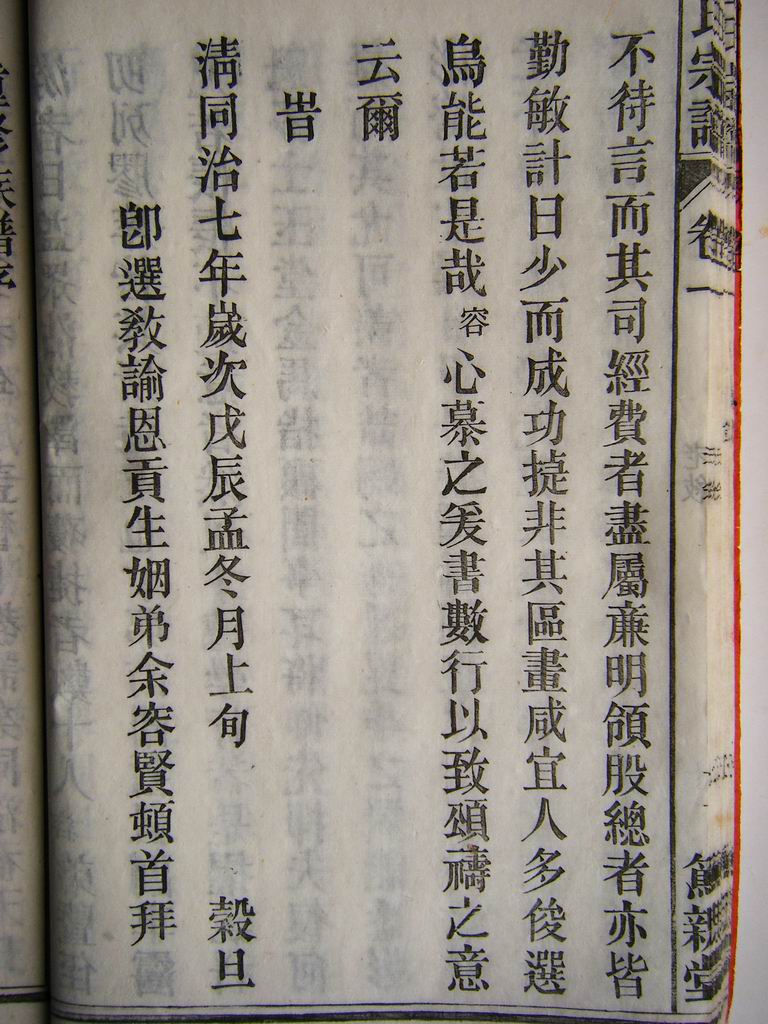 氏宗譜 卷一 篤親堂
不待言而其司經費者盡屬亷明領股總者亦皆
勤敏計日少而成功㨗非其區畫咸宜人多俊選
烏能若是哉容心慕之爰書數行以致頌禱之意
云爾
旹
淸同治七年歲次戊辰孟冬月上旬 穀旦
卽選敎諭恩貢生姻弟余容賢頓首拜
重修族譜序